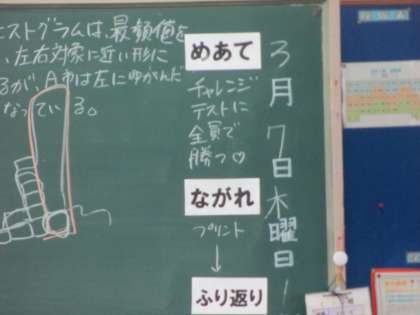 ヒストグラムは、最頻値を
、左右対象に近い形に
るが、A市は左にゆがんだ
なっている。
めあて
チャレンジ
テストに
全員で
勝つ♡
ながれ
プリント
↓
ふり返り
3月7日木曜日!